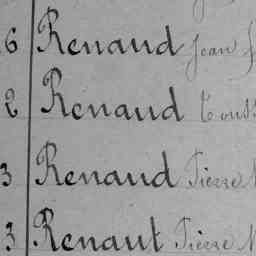 6 Renaud Jean
2 Renaud
3 Renaud Pierre
3 Renaut Pierre